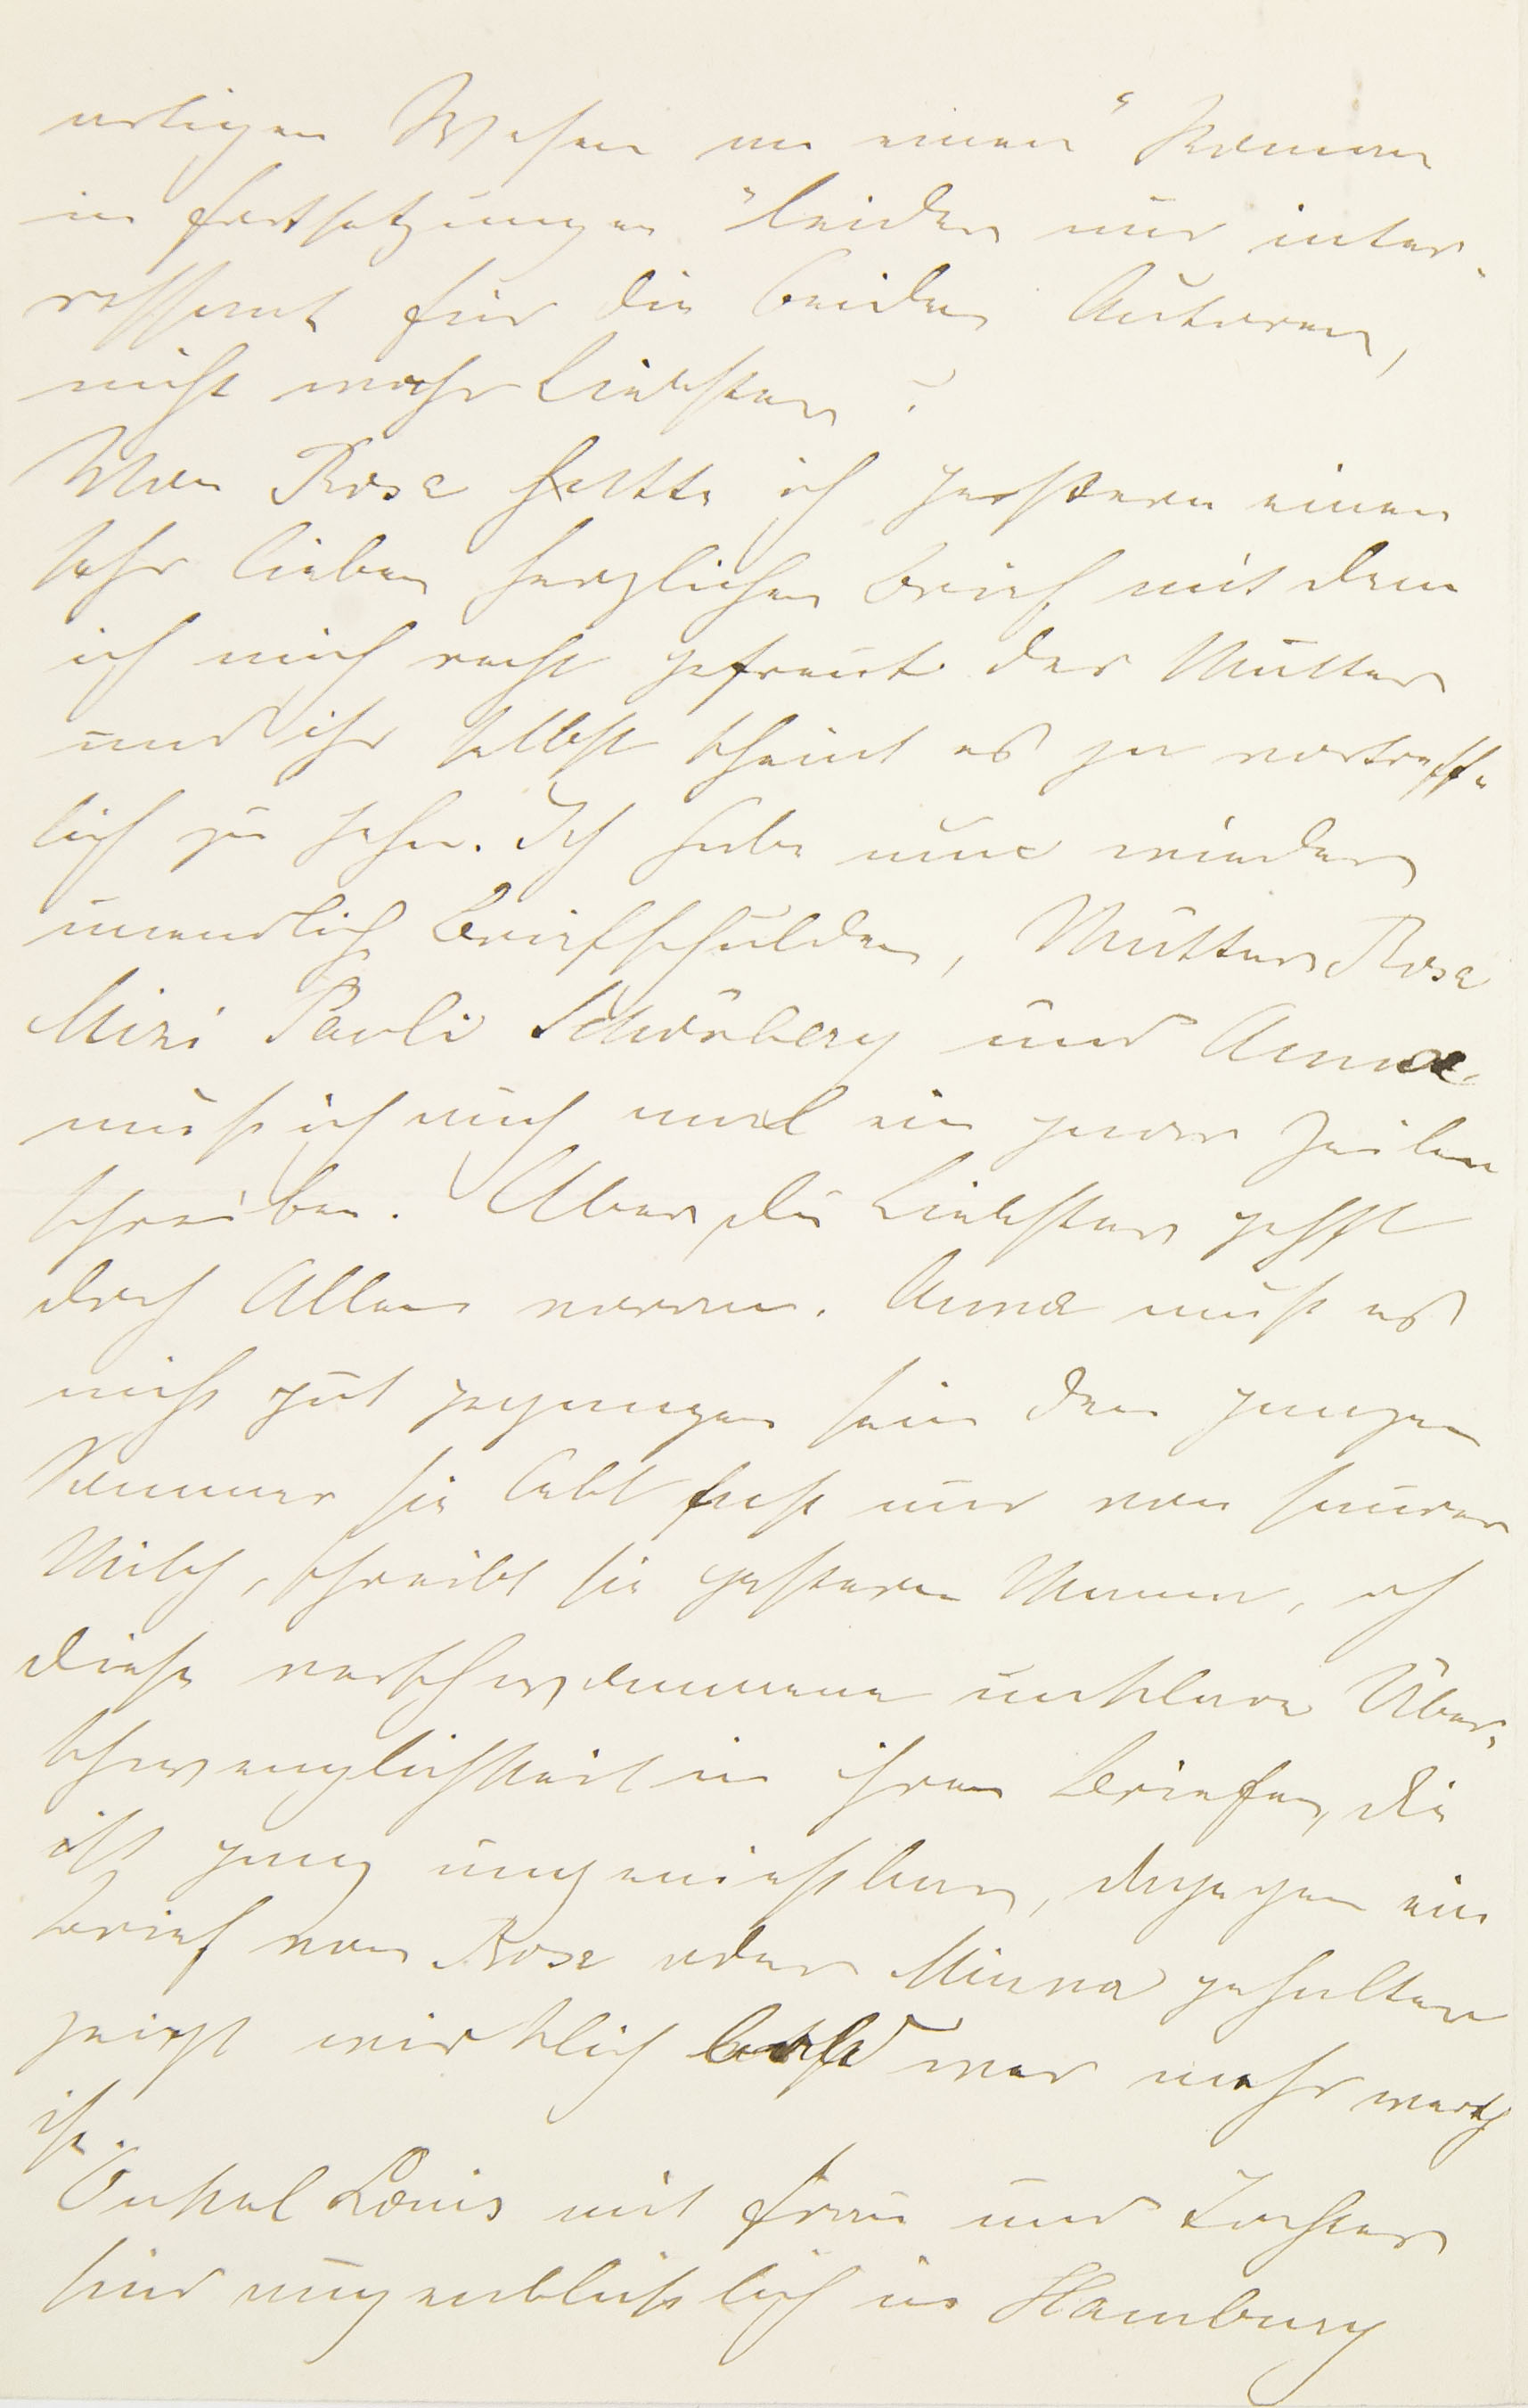 artigen Wesen an einen "Roman
in Fortsetzungen" leider nur inter-
ressant für die beiden Autoren,
nicht wahr Liebster?
Von Rosa hatte ich gestern einen
sehr lieben herzlichen Brief mit dem
ich mich recht gefreut der Mutter
und ihr selbst scheint es ja vortreff-
lich zu gehn. Ich habe nun wieder
unendlich Briefschulden, Mutter, Rosa
Mizi Pauli Schönberg und Anna
muß ich auch mal ein paar Zeilen
schreiben. Aber du Liebster gehst
doch Allen voran. Anna muß es
nicht gut gegangen sein den ganzen
Sommer sie lebt fast nur von saurer
Milch, schreibt sie gestern Mama, ach
diese verschwommene unklare Über-
schwenglichkeit in ihren Briefen, die
ist ganz ungenießbar, dagegen ein
Brief von Rosa oder Minna gehalten
zeigt wirklich bald wer mehr werth
ist.
Onkel Louis mit Frau und Tochter
sind augenblicklich in Hamburg